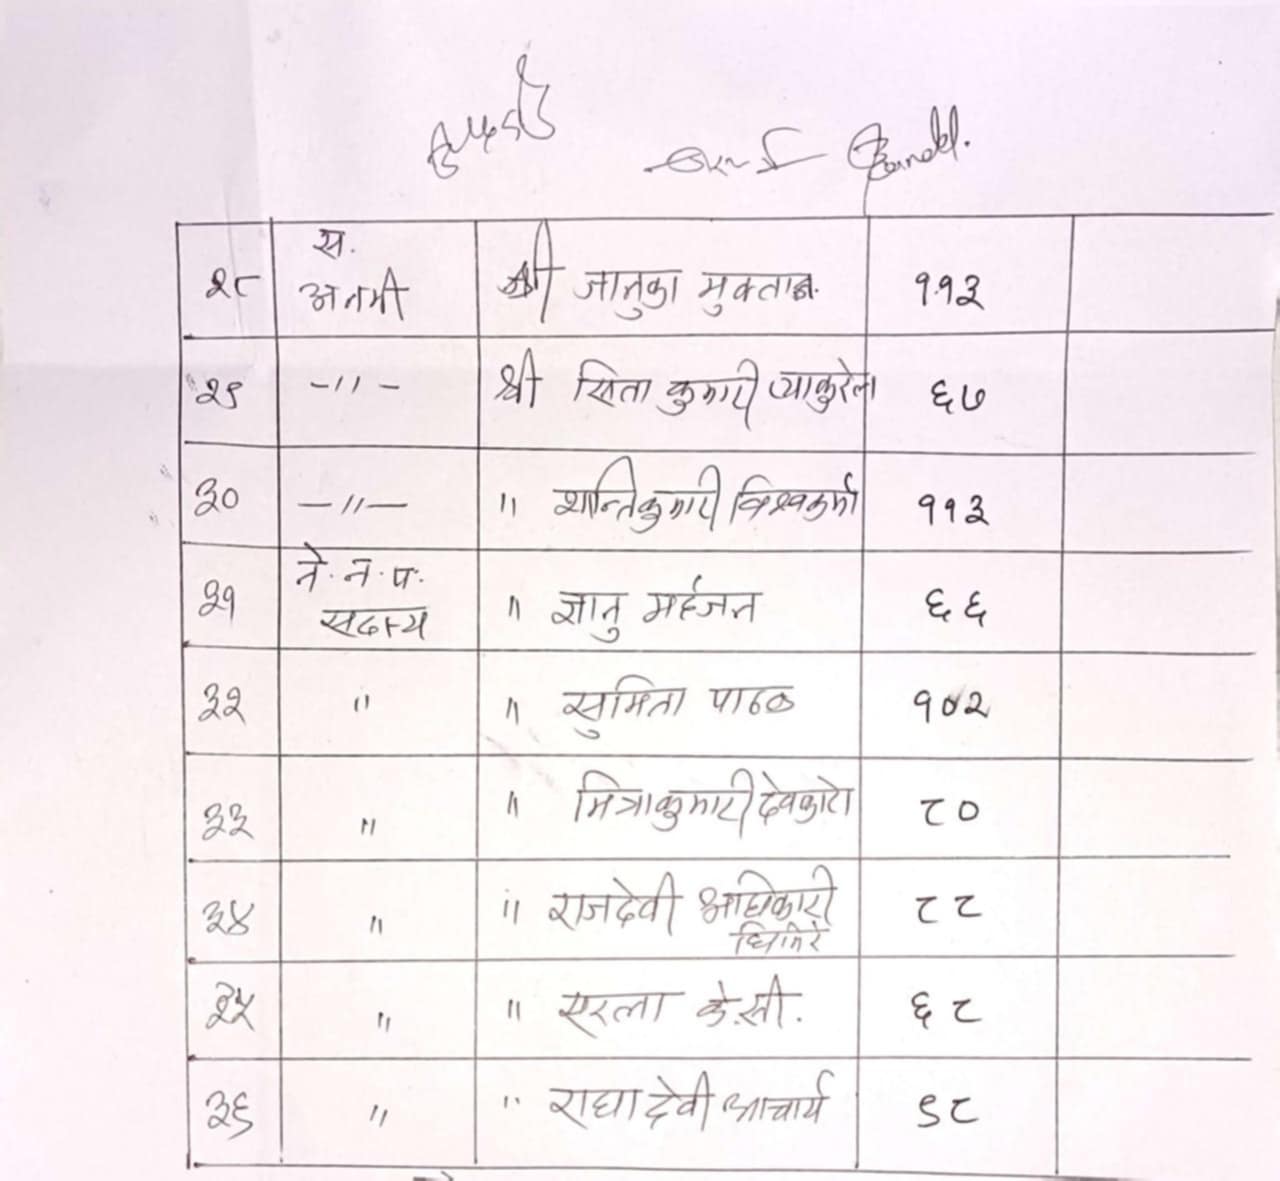 २८ स. अनमी श्री जानुका मुक्तान ११३
२९ -"- श्री सिता कुमारी प्याकुरेल ६७
३० -"- " शान्तिकुमारी विश्वकर्मा ११३
३१ ने. न. प. सदस्य " ज्ञानु महर्जन ६६
३२ " " सुमिता पाठक १०२
३३ " " मित्राकुमारी देवकोटा ८०
३४ " " राजदेवी अधिकारी घिमिरे ८८
३५ " " सरला के.सी. ६८
३६ " " राधा देवी आचार्य ९८